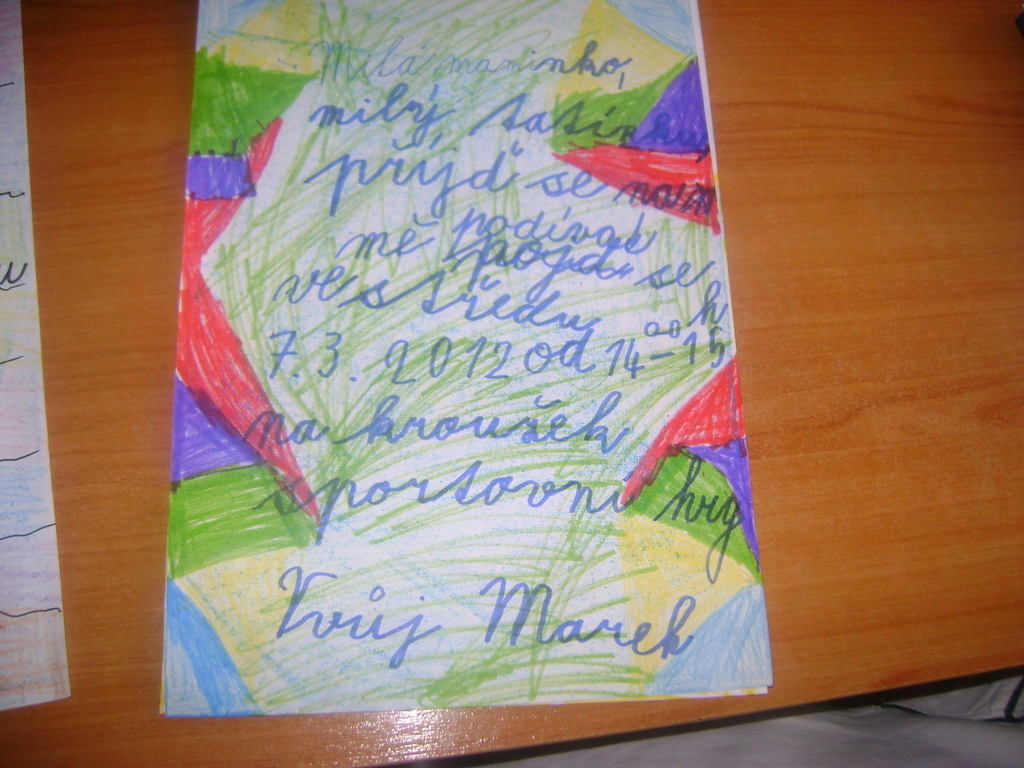 Milá maminko,
milý tatínku,
přijď se
mě podívat
pojď se
ve středu h
7.3. 2012 od 14⁰⁰-15
na kroužek
sportovní hry
Tvůj Marek